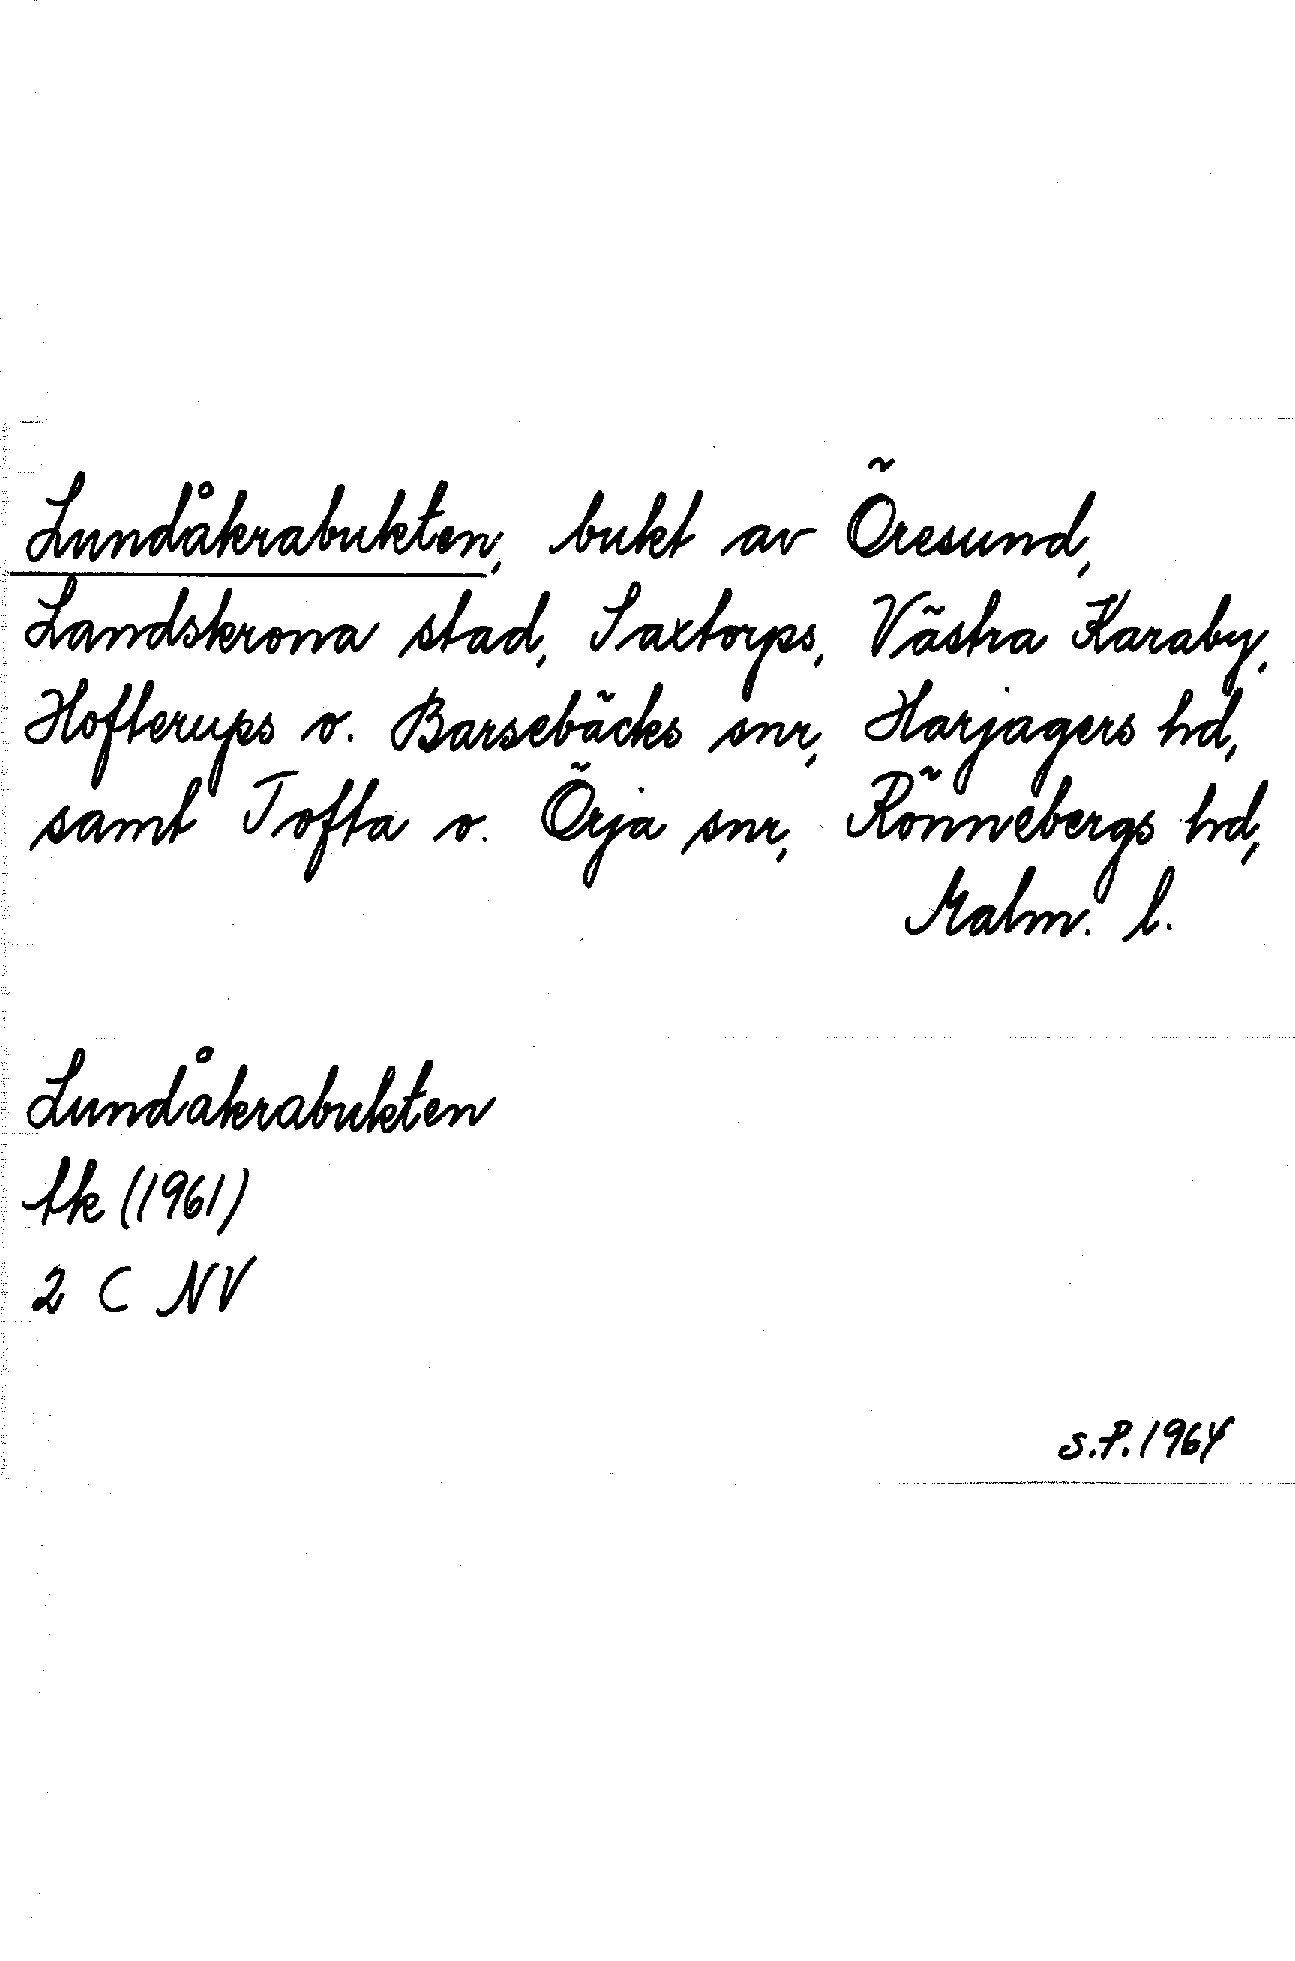 Lundåkrabukten, bukt av Öresund,
Landskrona stad, Saxtorps, Västra Karaby,
Hofterups o. Barsebäcks snr, Harjagers hd,
samt Tofta o. Örja snr, Rönnebergs hd,
Malm. l.
Lundåkrabukten
tk (1961)
2 C NV
S.P. 1964